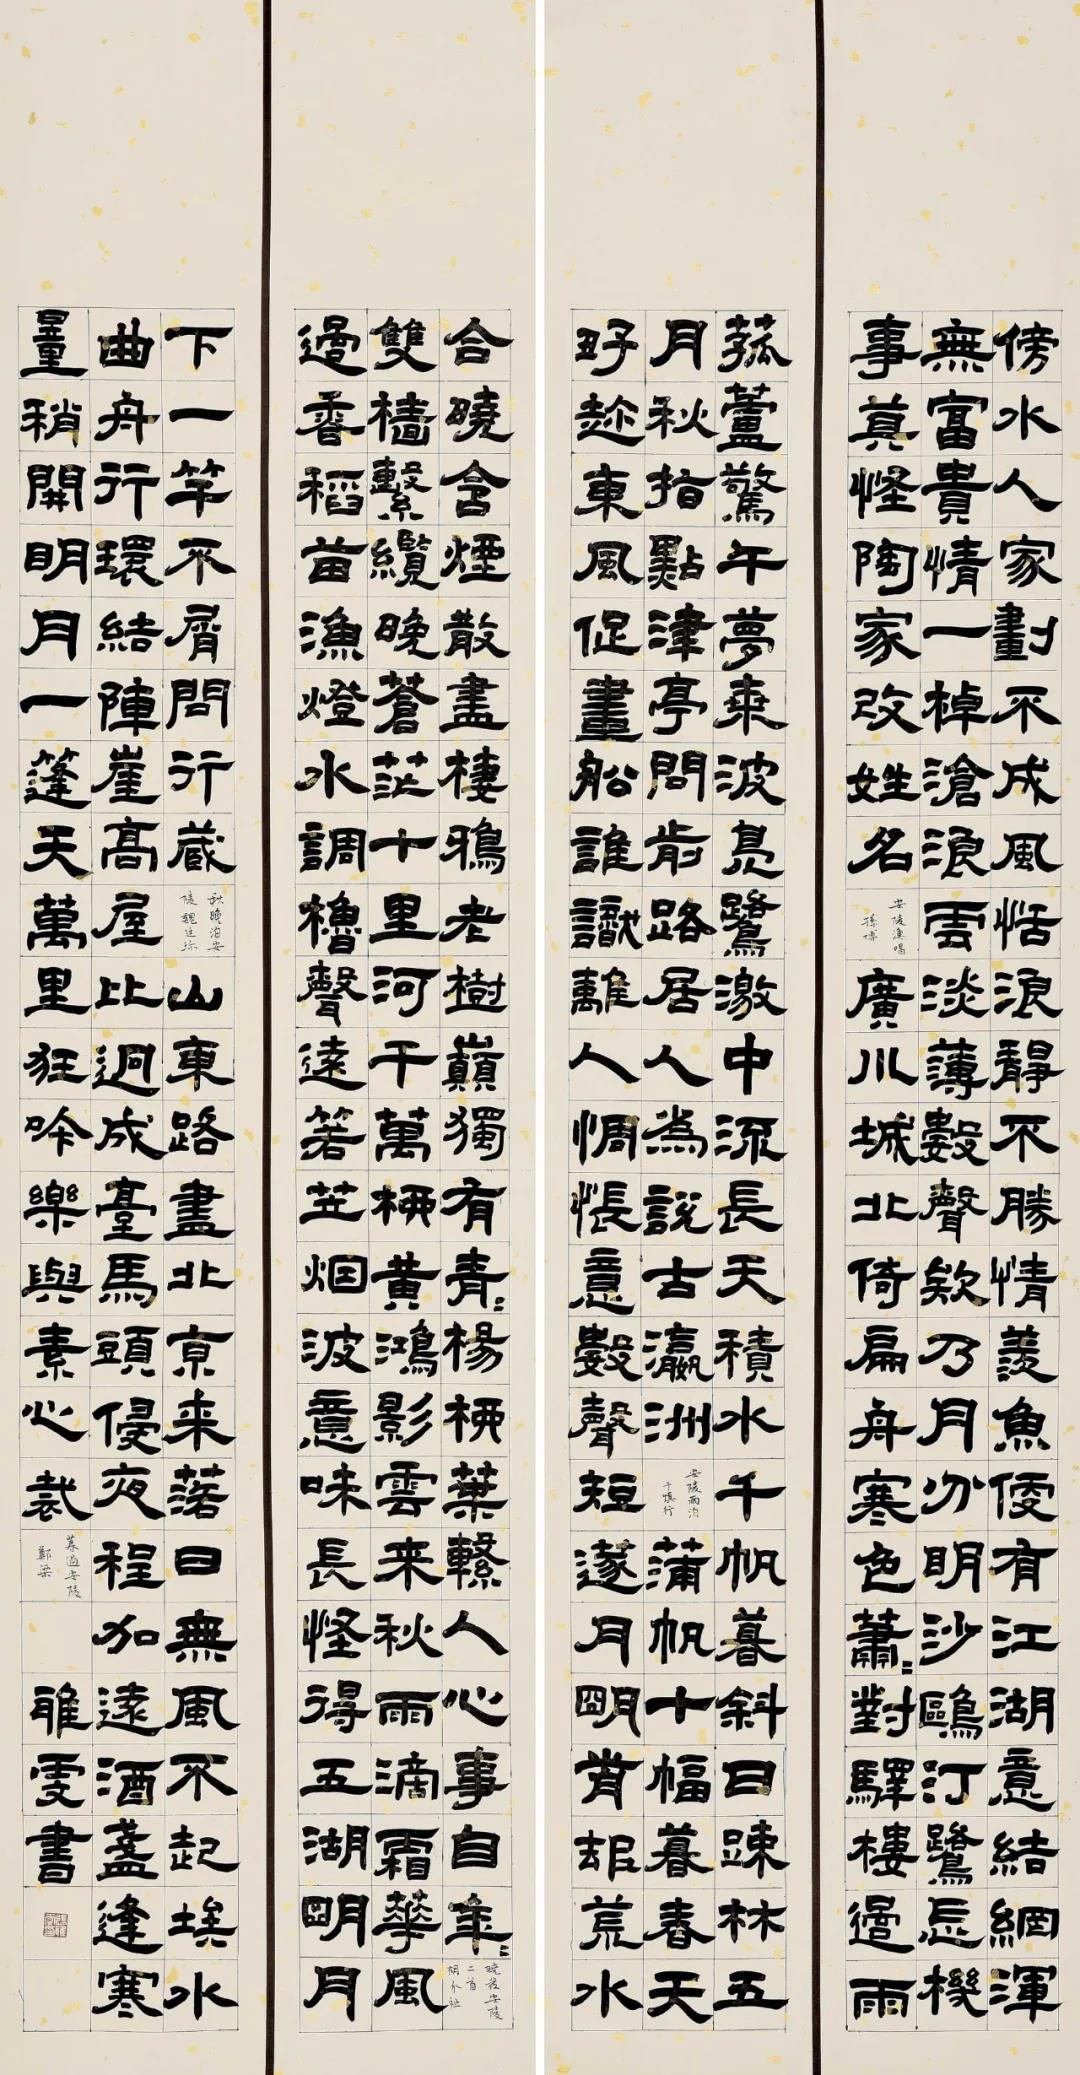 傍水人家劃不成風恬浪靜不勝情羨魚便有江湖意結網渾
無富貴情一棹滄浪雲淡薄數聲欸乃月分明沙鷗汀鷺忘機
事莫怪陶家改姓名
安陵漁唱
孫博
廣川城北倚扁舟寒色蕭〻對驛樓過雨
菰蘆驚午夢乘波鳧鷺激中流長天積水千帆暮斜日疎林五
月秋指點津亭問前路居人為說古瀛洲
安陵雨泊
于慎行
蒲帆十幅暮春天
好趁東風促畫船誰識離人惆悵意數聲短篴月明宵邨荒水
合曉含煙散盡棲鴉老樹巔獨有青〻楊柳葉繫人心事自年〻
晚發安陵
二首
胡介祉
雙檣繫纜晚蒼茫十里河干萬柳黃鴻影雲来秋雨滴霜華風
過香稻苗漁燈水調櫓聲遠箬笠烟波意味長怪得五湖明月
下一竿不屑問行藏
秋晚泊安
陵 魏廷珍
山東路盡北京来落日無風不起埃水
曲舟行環結陣崖高屋比迥成臺馬頭侵夜程加遠酒盞逢寒
量稍開明月一篷天萬里狂吟樂與素心裁
暮過安陵
鄭梁
雅雯書